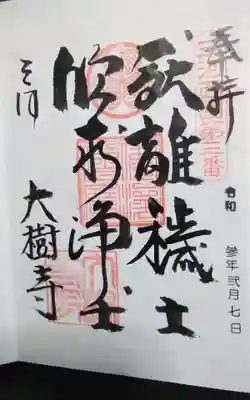 奉拝
令和 参年 弐月 七日
厭離穢土
欣求浄土
三河
大樹寺